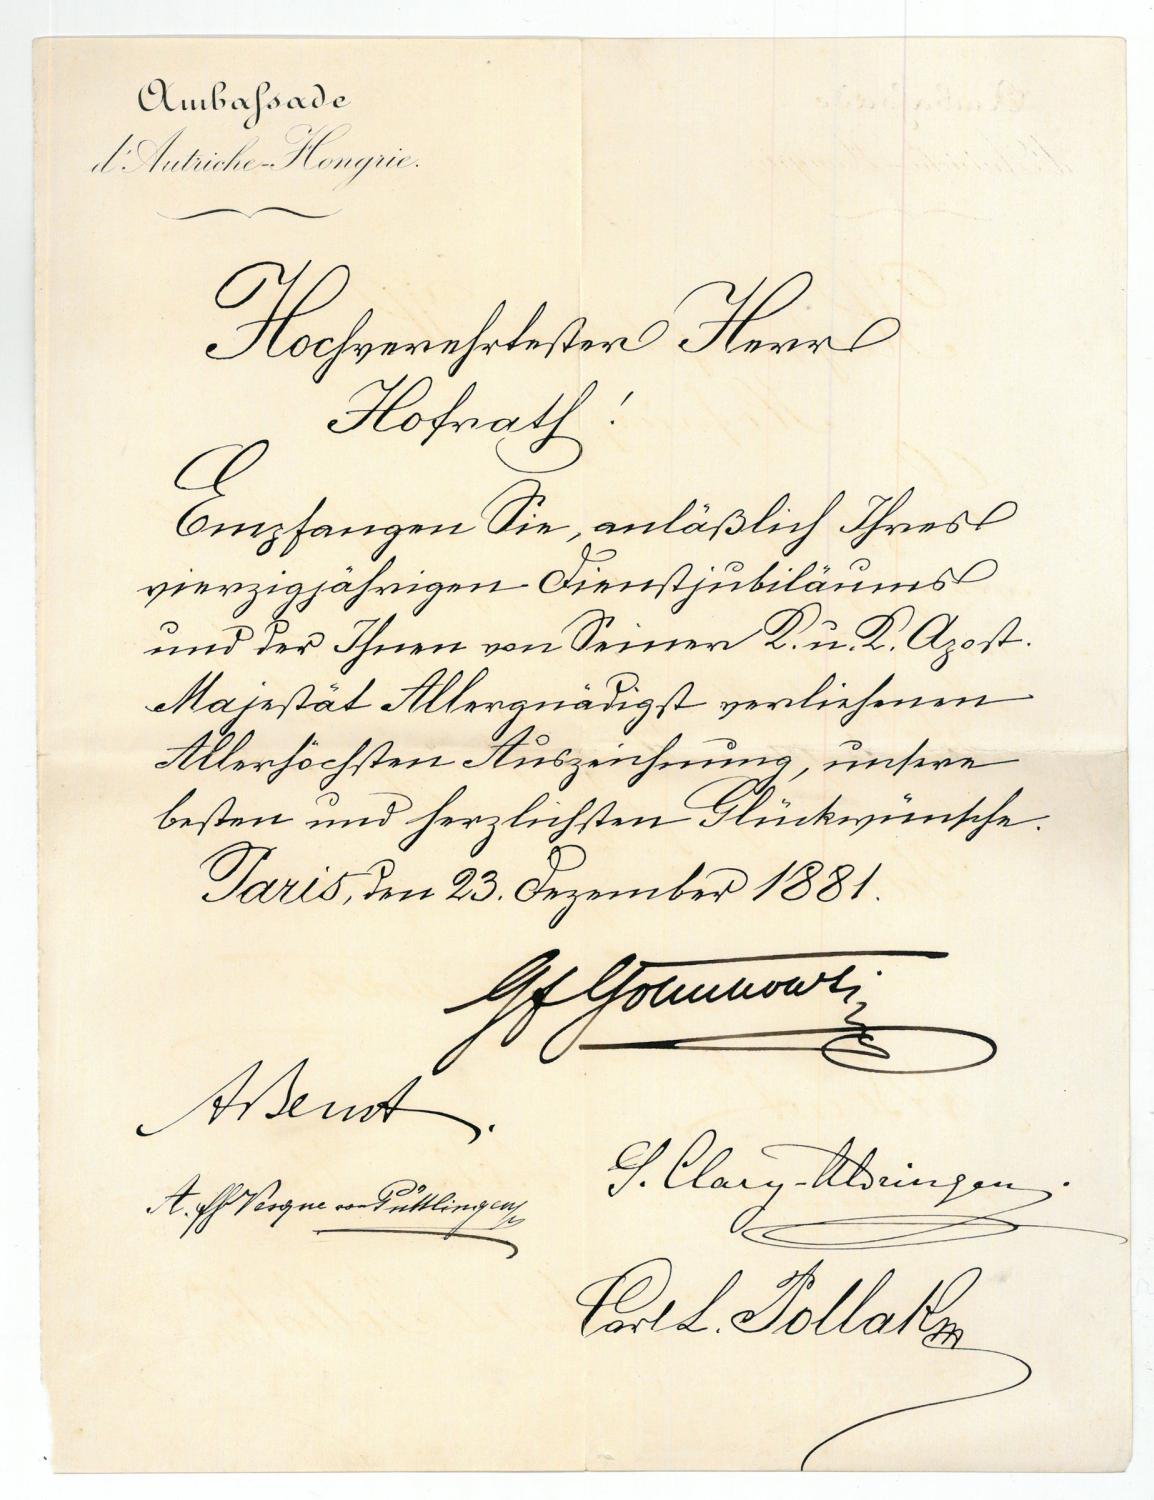 Ambassade
d'Autriche-Hongrie.
Hochverehrtester Herr
Hofrath!
Empfangen Sie, anläßlich Ihres
vierzigjährigen Dienstjubiläums
und der Ihnen von Seiner K. u. K. Apost.
Majestät Allergnädigst verliehenen
Allerhöchsten Auszeichnung, unsere
besten und herzlichsten Glückwünsche.
Paris, den 23. Dezember 1881.
Gf Goluchowski
S. Clary-Aldringen
A. Vesque von Püttlingen
Carl L. Pollak